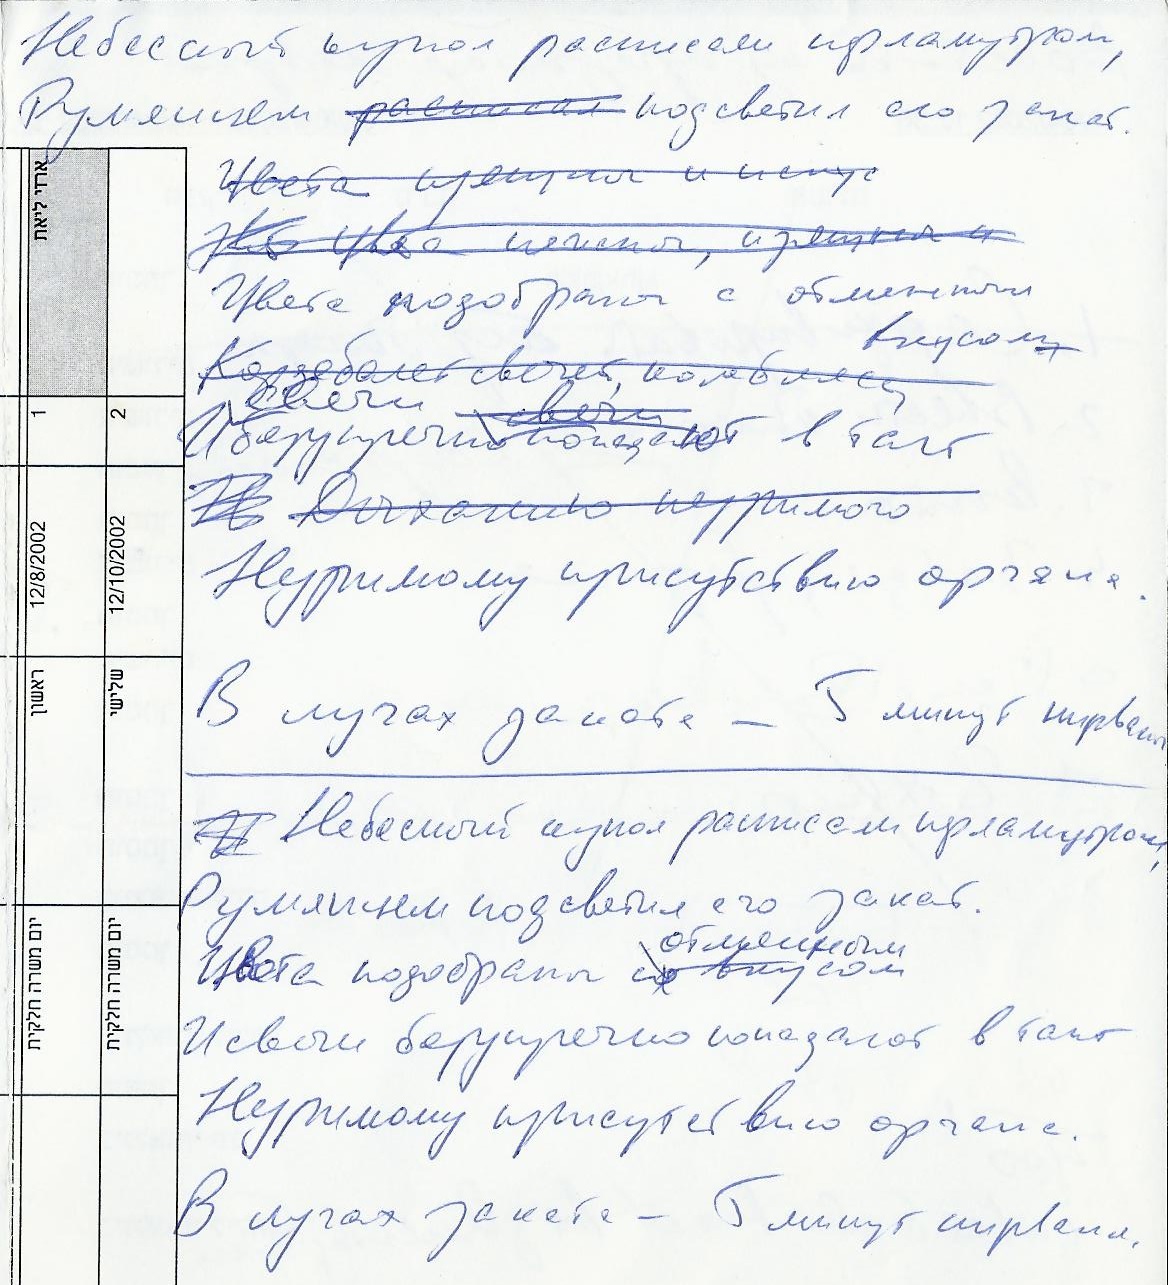 Небесный купол расписали перламутром,
Румянцем расписал подсветил его закат.
Цвета изящны и искус
Цвета нежны, изящны и
Цвета подобраны с отменным
вкусом
Канделябет свечей, колеблясь
свечи свечи
И безупречно попадают в такт
Дыханию незримого
Незримому присутствию органа.
В лучах заката – 5 минут нирваны
Небесный купол расписали перламутром,
Румянцем подсветил его закат.
отменным
Цвета подобраны со вкусом
И свечи безупречно попадают в такт
Незримому присутствию органа.
В лучах заката – 5 минут нирваны.
ארדי ליאת
1
2
12/8/2002
12/10/2002
ראשון
שלישי
יום משרה חלקית
יום משרה חלקית